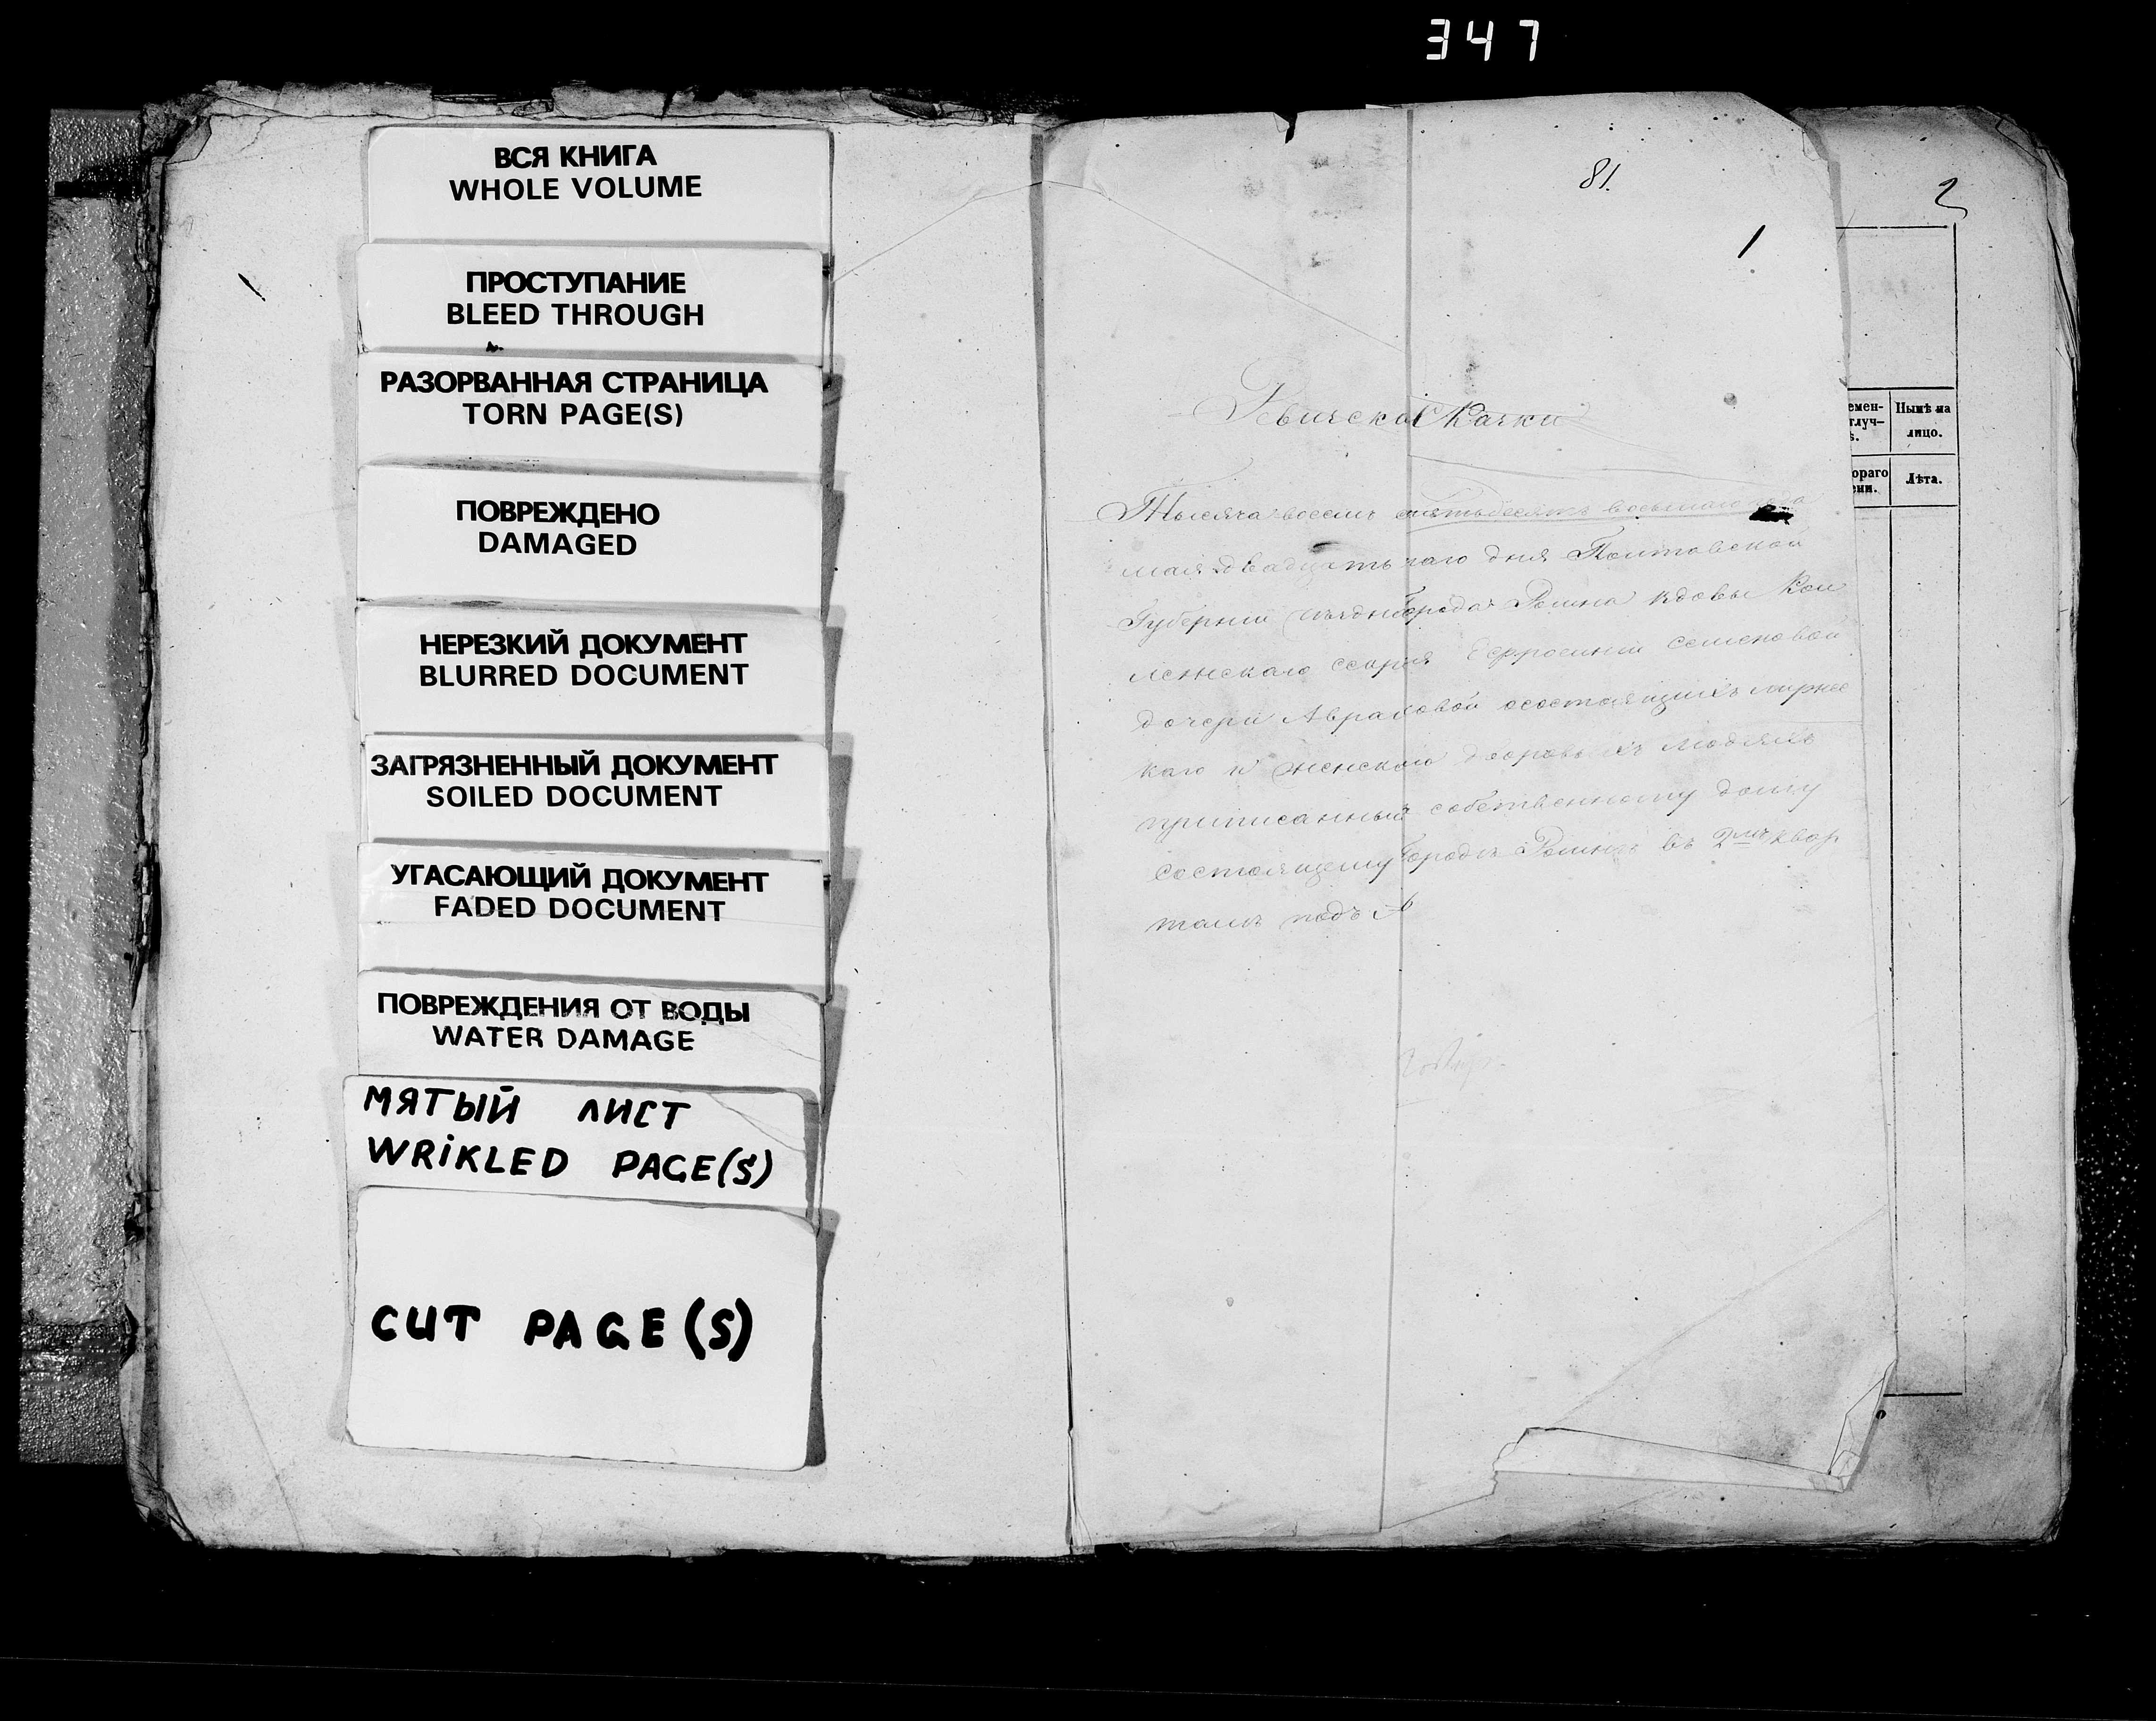 347
ВСЯ КНИГА
WHOLE VOLUME
ПРОСТУПАНИЕ
BLEED THROUGH
РАЗОРВАННАЯ СТРАНИЦА
TORN PAGE(S)
ПОВРЕЖДЕНО
DAMAGED
НЕРЕЗКИЙ ДОКУМЕНТ
BLURRED DOCUMENT
ЗАГРЯЗНЕННЫЙ ДОКУМЕНТ
SOILED DOCUMENT
УГАСАЮЩИЙ ДОКУМЕНТ
FADED DOCUMENT
ПОВРЕЖДЕНИЯ ОТ ВОДЫ
WATER DAMAGE
МЯТЫЙ ЛИСТ
WRIKLED PAGE(S)
CUT PAGE(S)
81.
1
Тысяча восемь пятьдесятъ восьмаго года
мая двадцать дня Полтавской
Губернии города Ромна вдовы Кол
леженскаго Ефросинии Семеновой
дочери о состоящихъ
каго и женскаго людяхъ
приписанный собственному дому
состоящему городе Ромнъ въ 2мъ квар
талъ подъ №
2
емен-
глуч-
ѣ.
Нынѣ на
лицо.
ораго
ени.
Лѣта.